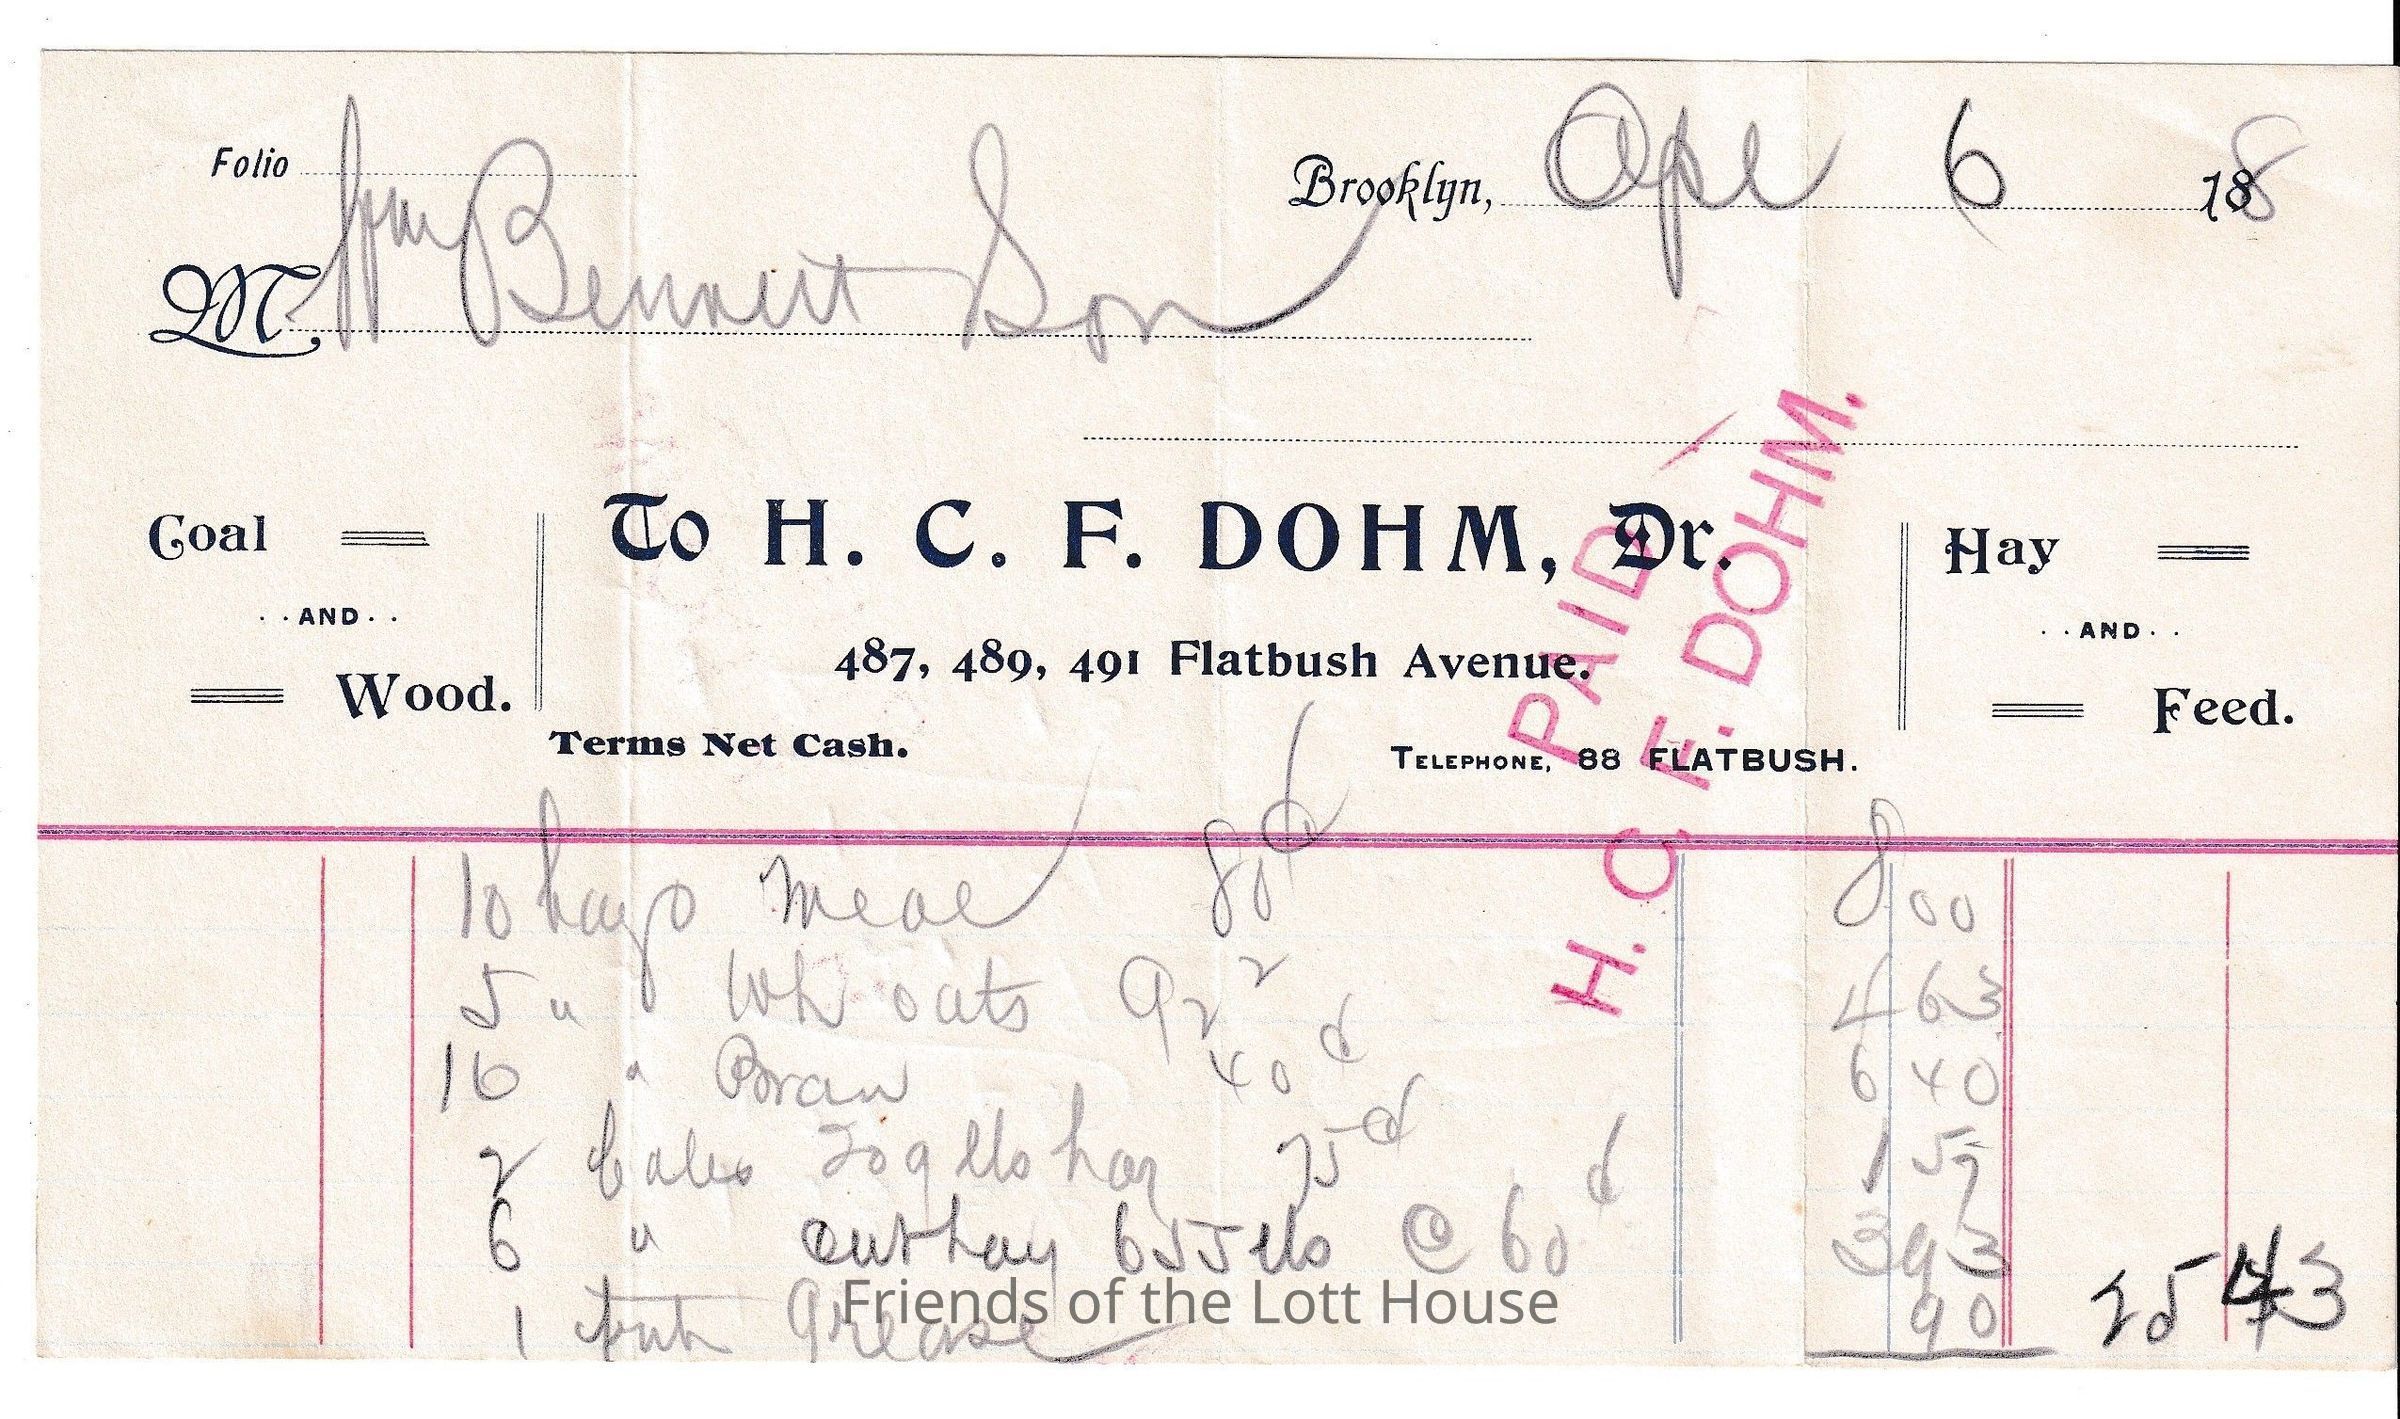 Folio
Brooklyn, Apl 6 188
M, Wm Bennett Son
Coal AND Wood.
To H. C. F. DOHM, Dr.
Hay AND Feed.
487, 489, 491 Flatbush Avenue.
Terms Net Cash.
TELEPHONE, 88 FLATBUSH.
PAID
H. C. F. DOHM.
10 bags meal 80¢ 8 00
5 " Wh oats 92 2 4 63
16 " Bran 40 ¢ 6 40
2 bales lbs hay 75 ¢ 1 57
6 " cut hay 655 lbs @ 60 ¢ 3 93
1 tub Grease 90 25 43
Friends of the Lott House